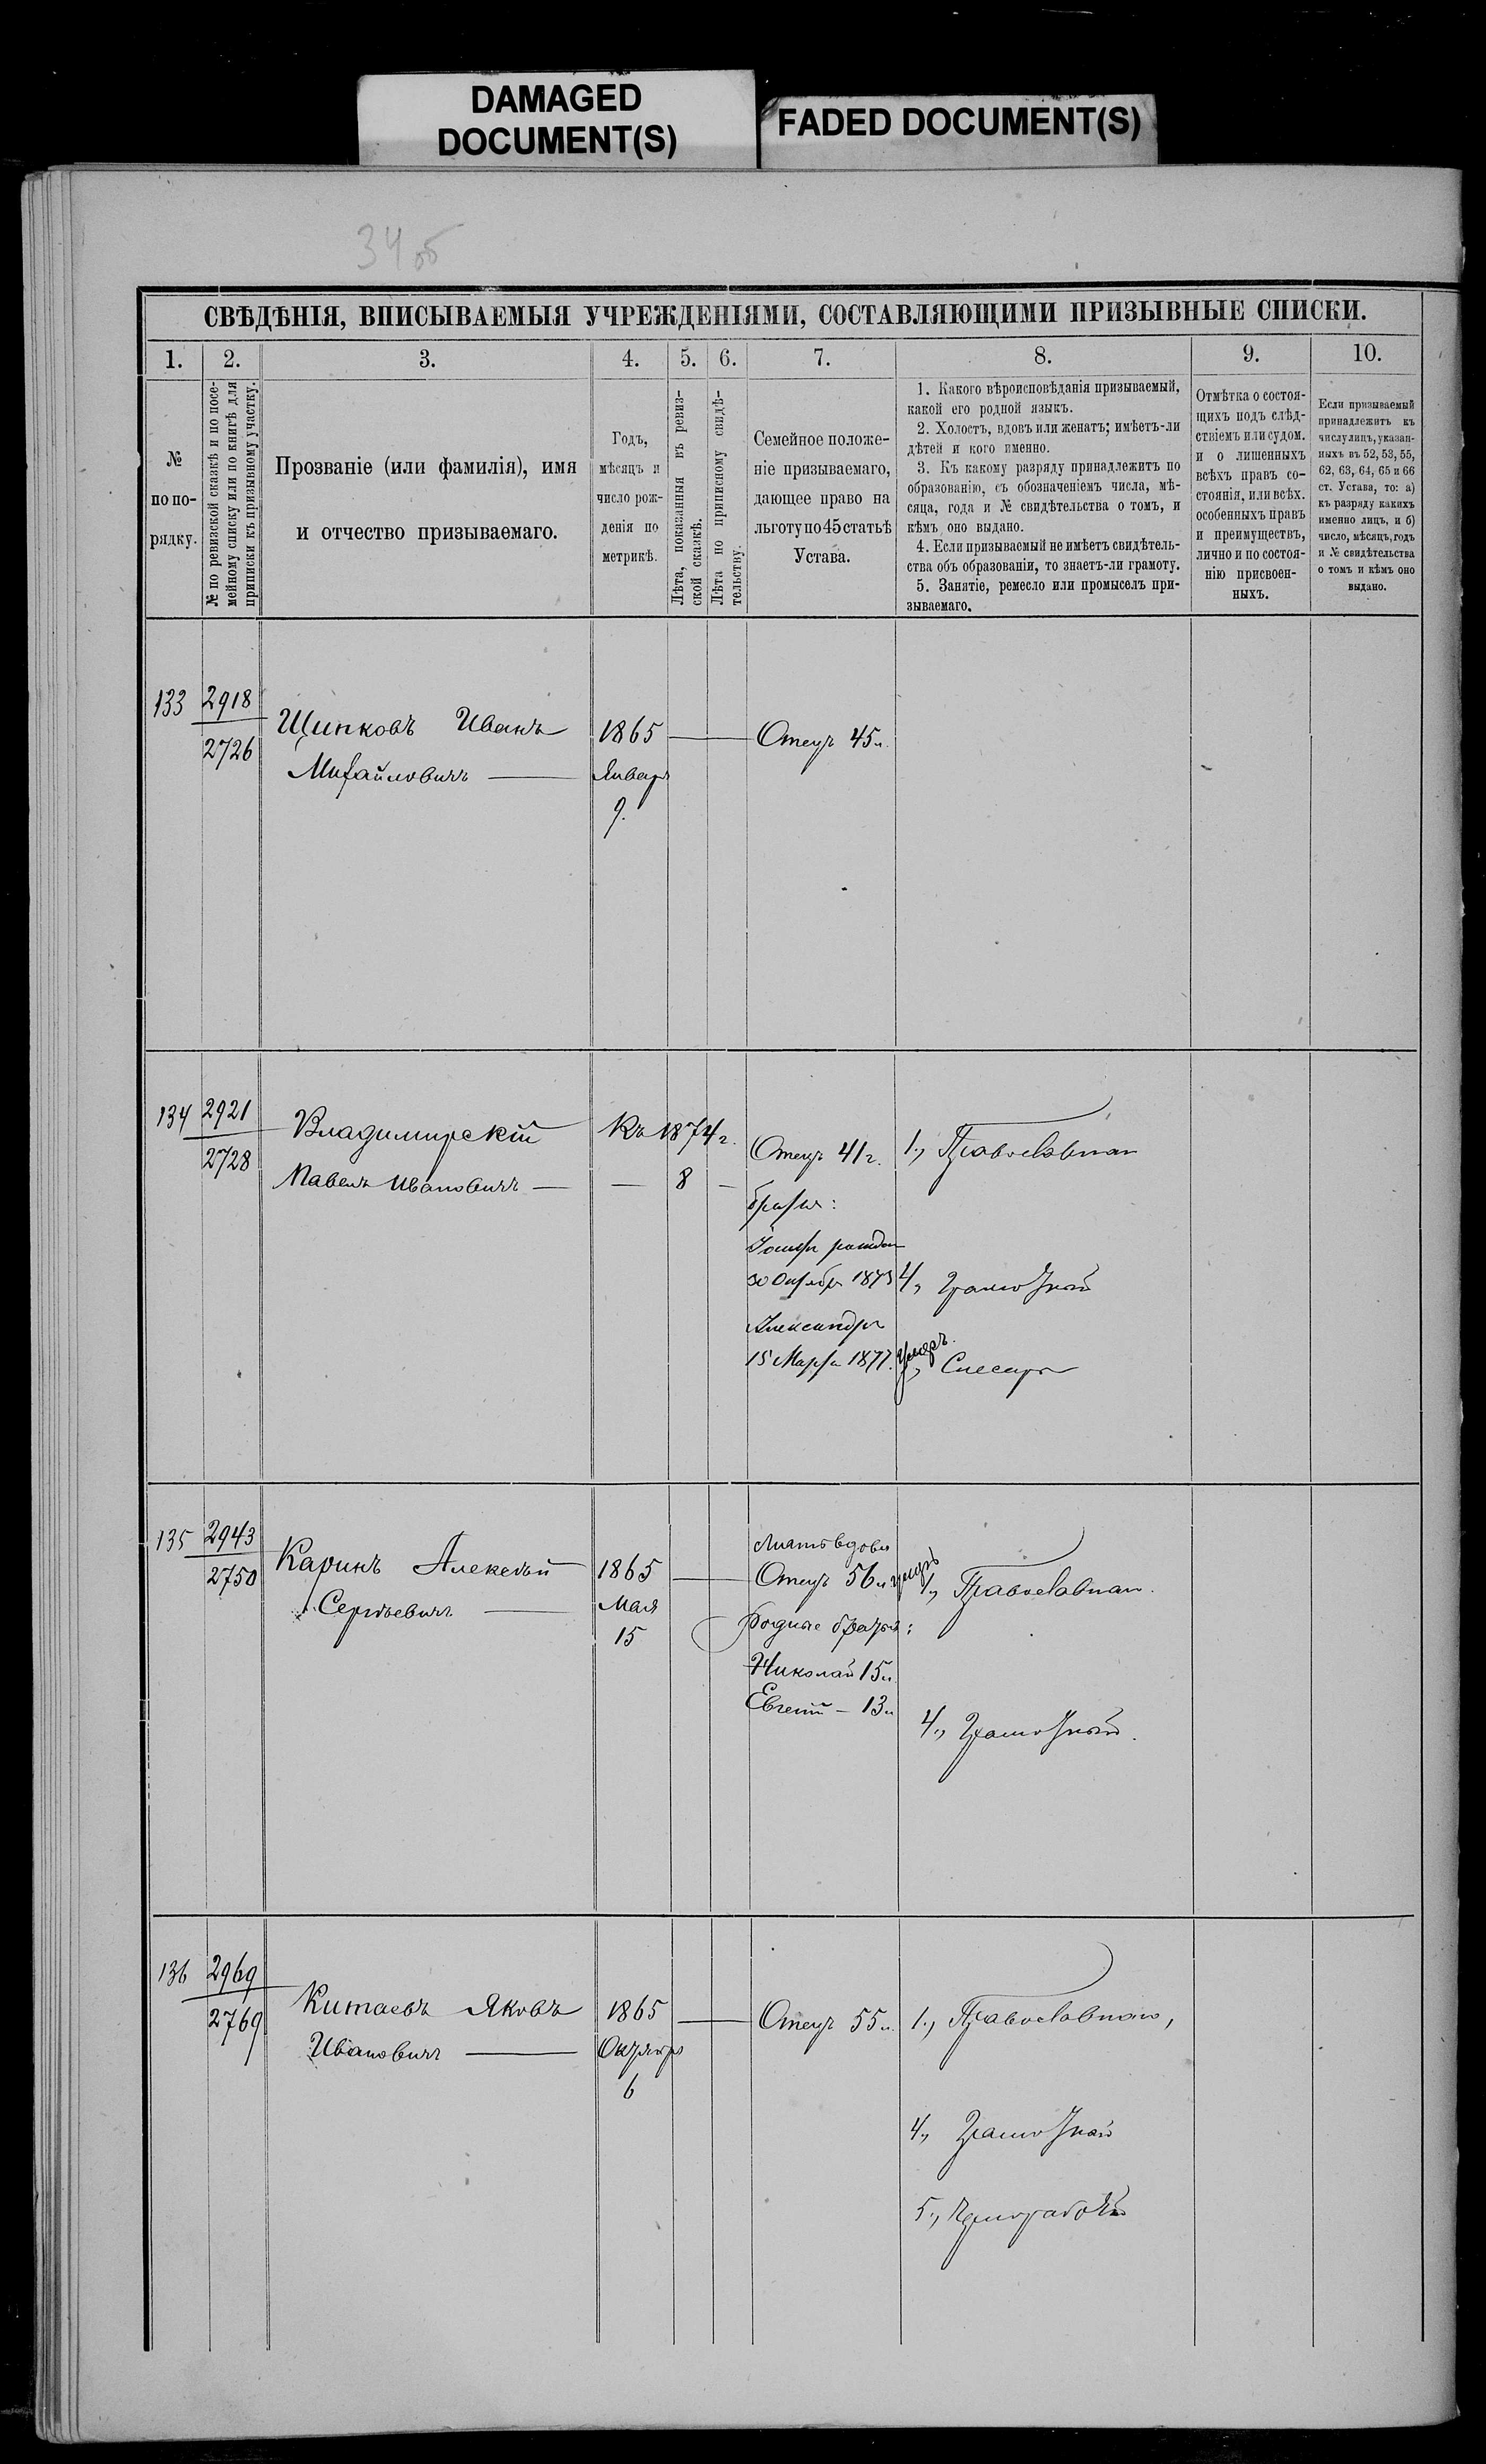 DAMAGED
DOCUMENT(S)
FADED DOCUMENT(S)
34 об
СВѢДѢНІЯ, ВПИСЫВАЕМЫЯ УЧРЕЖДЕНІЯМИ, СОСТАВЛЯЮЩИМИ ПРИЗЫВНЫЕ СПИСКИ.
1. 2. 3. 4. 5. 6. 7. 8. 9. 10.
№
по по-
рядку.
№ по ревизской сказкѣ и по посе-
мейному списку или по книгѣ для
приписки къ призывному участку.
Прозваніе (или фамилія), имя
и отчество призываемаго.
Годъ,
мѣсяцъ и
число рож-
денія по
метрикѣ.
Лѣта, показанныя въ ревиз-
ской сказкѣ.
Лѣта по приписному свидѣ-
тельству.
Семейное положе-
ніе призываемаго,
дающее право на
льготу по 45 статьѣ
Устава.
1. Какого вѣроисповѣданія призываемый,
какой его родной языкъ.
2. Холостъ, вдовъ или женатъ; имѣетъ-ли
дѣтей и кого именно.
3. Къ какому разряду принадлежитъ по
образованію, съ обозначеніемъ числа, мѣ-
сяца, года и № свидѣтельства о томъ, и
кѣмъ оно выдано.
4. Если призываемый не имѣетъ свидѣтель-
ства объ образованіи, то знаетъ-ли грамоту.
5. Занятіе, ремесло или промыселъ при-
зываемаго.
Отмѣтка о состоя-
щихъ подъ слѣд-
ствіемъ или судом.
и о лишенныхъ
всѣхъ правъ со-
стоянія, или всѣх.
особенныхъ правъ
и преимуществъ,
лично и по состоя-
нію присвоен-
ныхъ.
Если призываемый
принадлежитъ къ
числу лицъ, указан-
ныхъ въ 52, 53, 55,
62, 63, 64, 65 и 66
ст. Устава, то: а)
къ разряду какихъ
именно лицъ, и б)
число, мѣсяцъ, годъ
и № свидѣтельства
о томъ и кѣмъ оно
выдано.
133 2918
2726
Щипковъ Иванъ 1865 Отецъ 45 л.
Михайловичъ Январь
9.
134 2921
2728
Владимирскій Къ 1874 г.
Павелъ Ивановичъ — 8
Отецъ 41 г.
братья:
30 Октября 1873
Александръ
15 Марта 1877. умеръ.
1., Православнаго
4, Грамотный
Слесарь
135 2943
2750
Каринъ Алексѣй 1865
Сергѣевичъ Мая
15
Мать вдова
Отецъ 56 л умеръ
Родные братья:
Николай 15 л.
Евгеній – 13 л
1., Православнаго.
4., Грамотный.
136 2969
2769
Китаевъ Яковъ 1865 Отецъ 55 л.
Ивановичъ Октября
6
1., Православнаго,
4., Грамотный
5., Чернорабочій